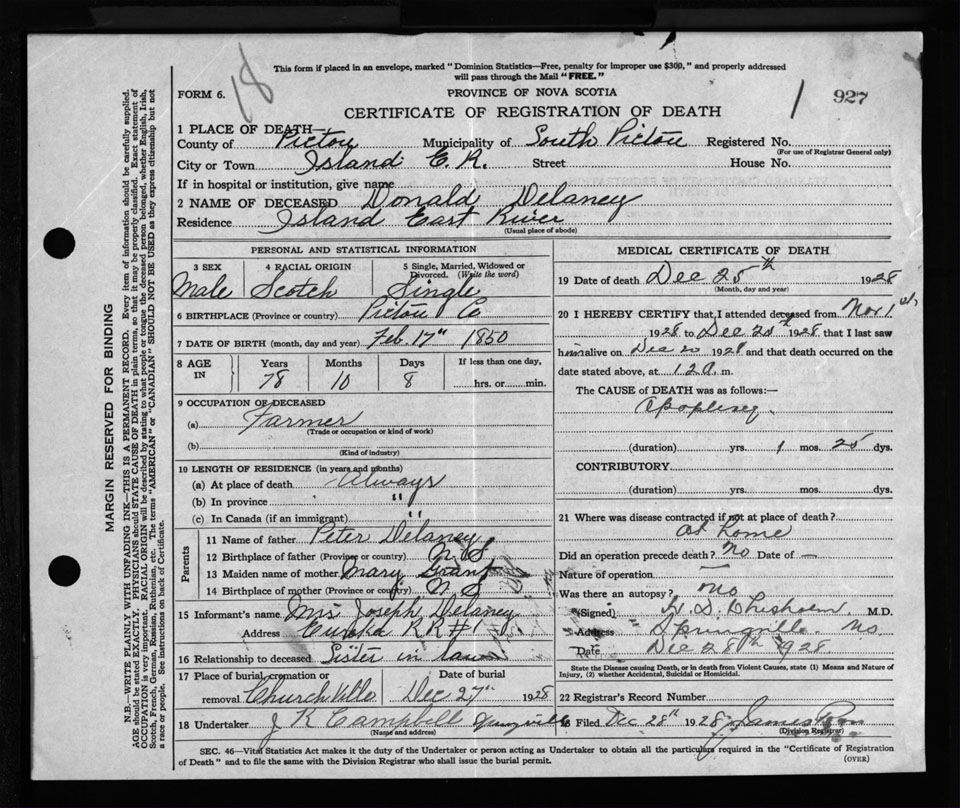 18
This form if placed in an envelope, marked "Dominion Statistics—Free, penalty for improper use $300," and properly addressed
will pass through the Mail "FREE."
FORM 6.
PROVINCE OF NOVA SCOTIA
1 927
CERTIFICATE OF REGISTRATION OF DEATH
1 PLACE OF DEATH—
County of Pictou Municipality of South Pictou Registered No.
(For use of Registrar General only)
City or Town Island E. R. Street House No.
If in hospital or institution, give name
2 NAME OF DECEASED Donald Delaney
Residence Island East River
(Usual place of abode)
PERSONAL AND STATISTICAL INFORMATION
3 SEX 4 RACIAL ORIGIN 5 Single, Married, Widowed or
Divorced. (Write the word)
Male Scotch Single
6 BIRTHPLACE (Province or country) Pictou Co
7 DATE OF BIRTH (month, day and year) Feb. 17th 1850
8 AGE IN Years Months Days If less than one day,
78 10 8 hrs. or min.
9 OCCUPATION OF DECEASED
(a) Farmer
(Trade or occupation or kind of work)
(b)
(Kind of industry)
10 LENGTH OF RESIDENCE (in years and months)
(a) At place of death Always
(b) In province "
(c) In Canada (if an immigrant) "
Parents
11 Name of father Peter Delaney
12 Birthplace of father (Province or country) N S
13 Maiden name of mother Mary Grant
14 Birthplace of mother (Province or country) N S
15 Informant's name Mrs Joseph Delaney
Address Eureka RR #1
16 Relationship to deceased Sister in law
17 Place of burial, cremation or Date of burial
removal Churchville Dec 27th 1928
18 Undertaker J K Campbell Springville
(Name and address)
MEDICAL CERTIFICATE OF DEATH
19 Date of death Dec 25th 1928
(Month, day and year)
20 I HEREBY CERTIFY that I attended deceased from Nov 1st
1928 to Dec 20th 1928 that I last saw
him alive on Dec 20 1928 and that death occurred on the
date stated above, at m.
The CAUSE of DEATH was as follows:—
Apoplexy
(duration) yrs. 1 mos. 25 dys.
CONTRIBUTORY
(duration) yrs. mos. dys.
21 Where was disease contracted if not at place of death?
At home
Did an operation precede death? No Date of —
Nature of operation —
Was there an autopsy? No
(Signed) D. Chisholm M.D.
Address Springville. NS
Date Dec 28th 1928
State the Disease causing Death, or in death from Violent Causes, state (1) Means and Nature of
Injury, (2) whether Accidental, Suicidal or Homicidal.
22 Registrar's Record Number
23 Filed Dec 28th 1928 James
(Division Registrar)
SEC. 46—Vital Statistics Act makes it the duty of the Undertaker or person acting as Undertaker to obtain all the particulars required in the "Certificate of Registration
of Death" and to file the same with the Division Registrar who shall issue the burial permit.
(OVER)
MARGIN RESERVED FOR BINDING
N.B.—WRITE PLAINLY WITH UNFADING INK—THIS IS A PERMANENT RECORD. Every item of information should be carefully supplied.
AGE should be stated EXACTLY. PHYSICIANS should STATE CAUSE OF DEATH in plain terms, so that it may be properly classified. Exact statement of
OCCUPATION is very important. RACIAL ORIGIN will be described by stating to what people or tongue the deceased person belonged, whether English, Irish,
Scotch, French, German, Russian, Ruthenian, etc. The terms "AMERICAN" or "CANADIAN" SHOULD NOT BE USED as they express citizenship but not
a race or people. See instructions on back of Certificate.